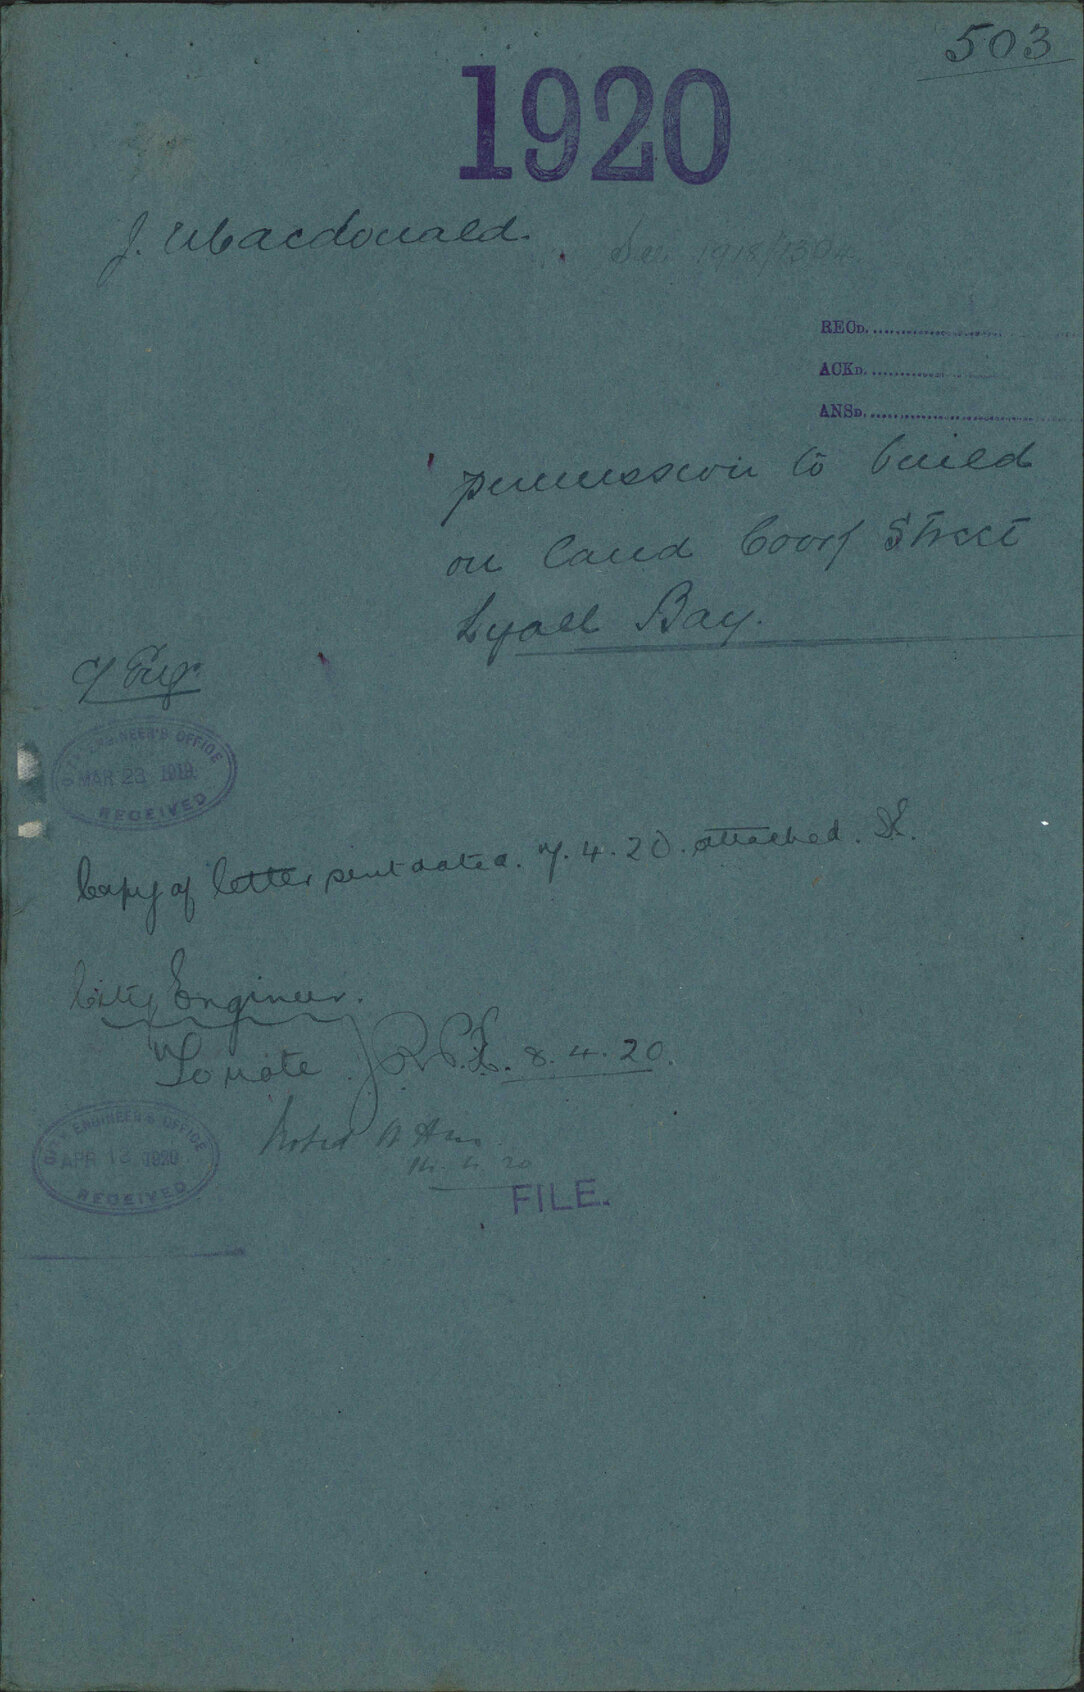 503
1920
J. Macdonald.
See 1918/1304
RECD.
ACKD.
ANSD.
permission to build
on land Coorf Street
Lyall Bay.
C/Eng.
CITY ENGINEER'S OFFICE
MAR 23 1919
RECEIVED
Copy of letter sent dated. 7. 4. 20. attached.
City Engineer.
To note. 8. 4. 20.
CITY ENGINEER'S OFFICE
APR 13 1920
RECEIVED
Noted
14. 4. 20
FILE.